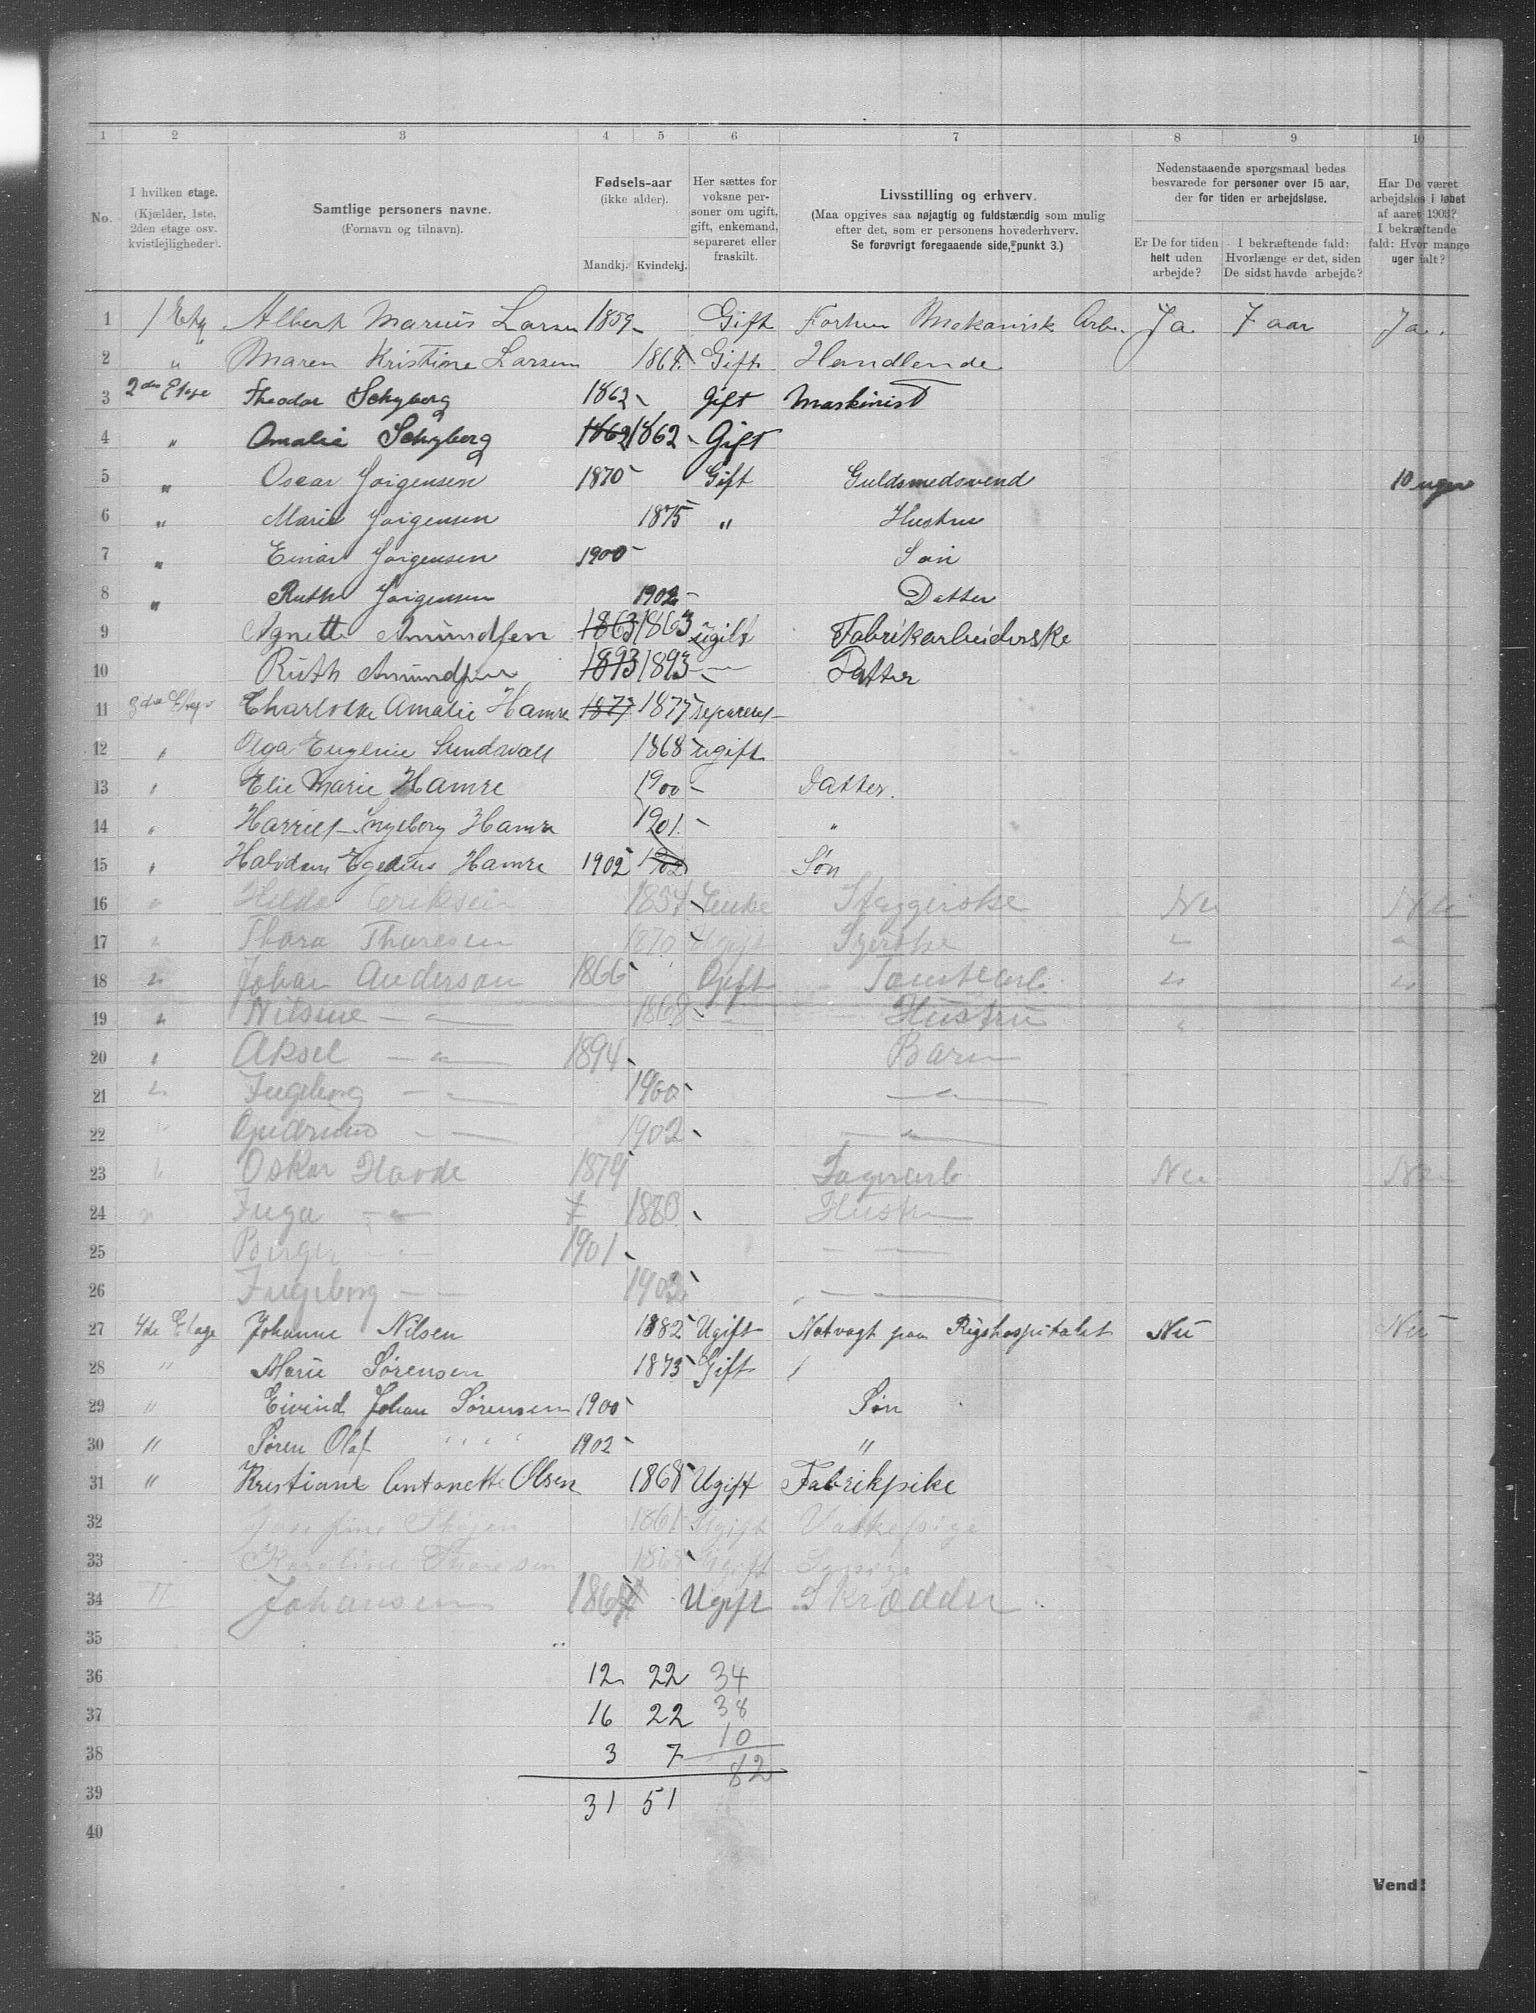 1 2 3 4 5 6 7 8 9 10
No. I hvilken etage. (Kjælder, 1ste, 2den etage osv. kvistleiligheder). Samtlige personers navne. (Fornavn og tilnavn). Fødsels-aar (ikke alder). Mandkj. Kvindekj. Her sættes for voksne personer om ugift, gift, enkemand, separeret eller fraskilt. Livsstilling og erhverv. (Maa opgives saa nøjagtig og fuldstændig som mulig efter det, som er personens hovederhverv. Se forøvrigt foregaaende side, punkt 3.) Nedenstaaende spørgsmaal bedes besvarede for personer over 15 aar, der for tiden er arbejdsløse. Er De for tiden helt uden arbejde? I bekræftende fald: Hvorlænge er det, siden De sidst havde arbejde? Har De været arbejdsløs i løbet af aaret 1903? I bekræftende fald: Hvor mange uger ialt?
1 1 Etg Albert Marius Larsen 1859 Gift Forhen Mekanisk Arb. Ja 7 aar Ja.
2 " Maren Kristine Larsen 1864 Gift Handlende
3 2den Etage Theodor Schyberg 1862 Gift Maskinist
4 " Amalie Schyberg 1862 1862 Gift
5 " Oscar Jørgensen 1870 Gift Guldsmedsvend 10 uger
6 " Marie Jørgensen 1875 " Hustru
7 " Einar Jørgensen 1900 Søn
8 " Ruth Jørgensen 1902 Datter
9 Agnette Amundsen 1863 1863 ugift Fabrikarbeiderske
10 Ruth Amundsen 1893 1893 — Datter
11 3die Etage Charlotte Amalie Hamre 1877 1877 separeret
12 " Olga Eugenie Sundwall 1868 ugift
13 " Elie Marie Hamre 1900 Datter.
14 " Harriet Ingeborg Hamre 1901 "
15 " Halvdam Egedius Hamre 1902 1902 Søn
16 " Hilda Eriksen 1854 Enke Stryggerske Nei Nei
17 " Thora Thoresen 1870 Ugift Syerske " "
18 " Johan Anderson 1866 Gift Tomtearb. " "
19 " Nilsine — " — 1868 — Hustru "
20 " Aksel — " — 1894 Barn
21 " Ingeborg — " — 1900 — " —
22 " Gudrund — " — 1902 — " —
23 " Oskar Hovde 1879 Lagerarb Nei Nei
24 " Inga — " — 1880 Hustru
25 Birger — " — 1901 — —
26 Ingeborg — — 1903 " —
27 4de Etage Johanne Nilsen 1882 Ugift Natvagt paa Rigshospitalet Nei Nei
28 " Marie Sørensen 1873 Gift "
29 " Eivind Johan Sørensen 1900 Søn
30 " Søren Olaf " " " " 1902 "
31 " Kristiane Antonette Olsen 1868 Ugift Fabrikpike
32 Josefine 1861 Ugift Vaskepige
33 Karoline Thoresen 1868 Ugift
34 " Johansen 1864 Ugift Skrædder
35
36 12 22 34
37 16 22 38
38 3 7 10
39 31 51 82
40
Vend!